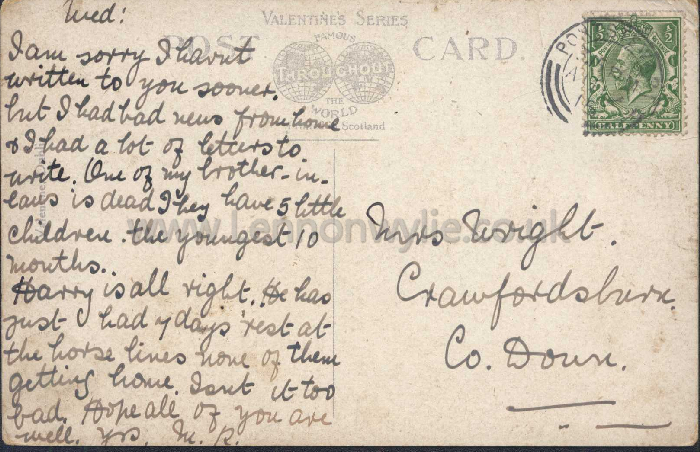 Wed:
VALENTINE'S SERIES
POST CARD.
FAMOUS
THROUGHOUT
THE
WORLD
Scotland
HALFPENNY
I am sorry I havnt
written to you sooner.
but I had bad news from home
& I had a lot of letters to
write. One of my brother-in-
laws is dead They have 5 little
children. the youngest 10
months..
Harry is all right. He has
just had 7 days rest at
the horse lines none of them
getting home. Isnt it too
bad. Hope all of you are
well. yrs. M. R.
Mrs Wright.
Crawfordsburn.
Co. Down.
www.Lennonwylie.co.uk